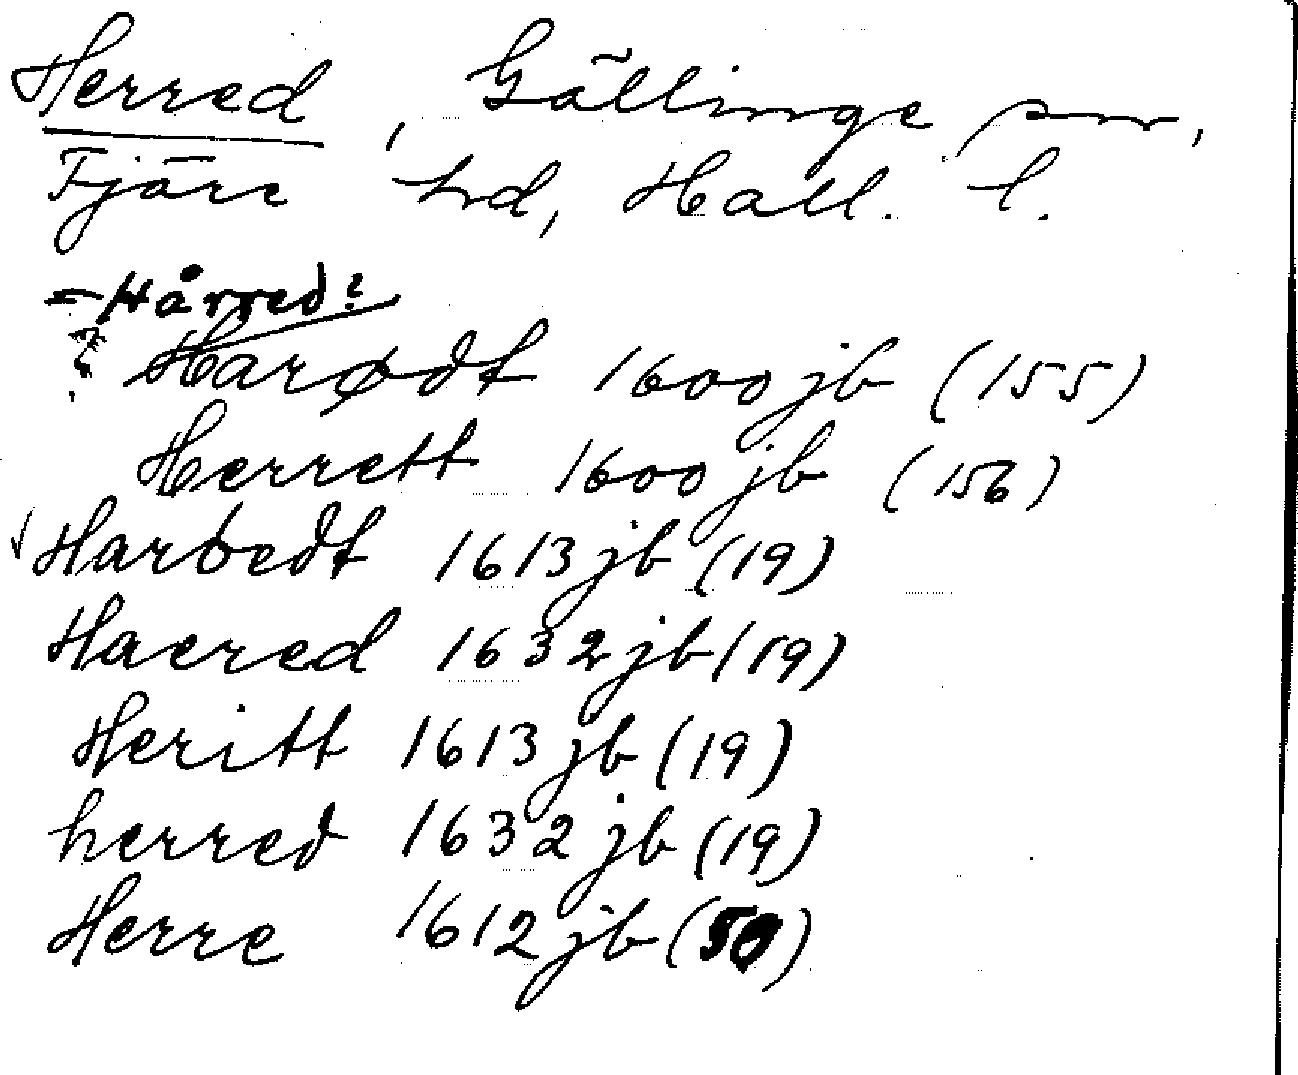 Herred, Gällinge sn,
Fjäre hd, Hall. l.
= Hårred?
? Harødt 1600 jb (155)
Herrett 1600 jb (156)
√ Harbedt 1613 jb (19)
Haered 1632 jb (19)
Heritt 1613 jb (19)
herred 1632 jb (19)
Herre 1612 jb (50)